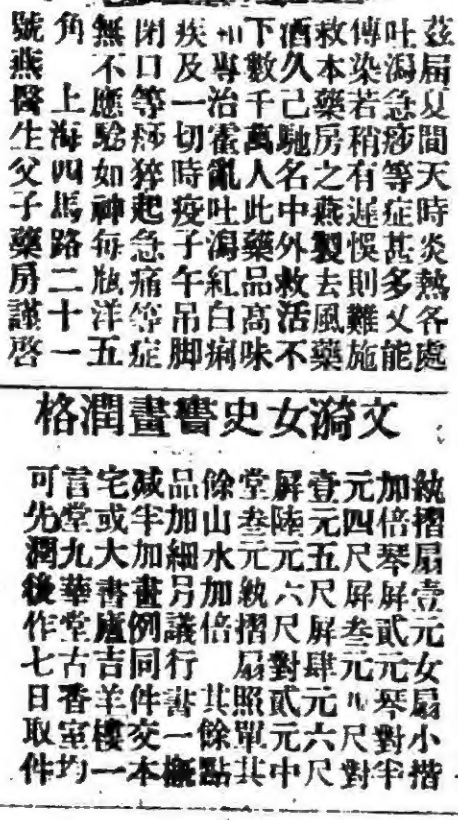 茲屆夏間天時炎熱各處
吐瀉急痧等症甚多又能
傳染若稍有遲悞則難施
救本藥房之燕製去風藥
酒久己馳名中外救活不
下數千萬人此藥品高味
專治霍亂吐瀉紅白痢
疾及一切時疫子午吊脚
閉口等痧猝起急痛等症
無不應驗如神每瓶洋五
角 上海四馬路二十一
號燕醫生父子藥房謹啓
文漪女史書畫潤格
紈摺扇壹元女扇小楷
加倍琴屏貳元琴對半
元四尺屏叁元尺對
壹元五尺屏肆元六尺
屏陸元六尺對貳元中
堂叁元紈摺扇照單其
餘山水加倍 其餘點
品加細另議行書一概
減半加畫例同件交本
宅或大書廬吉羊樓一
言堂九華堂古香室均
可先潤後作七日取件